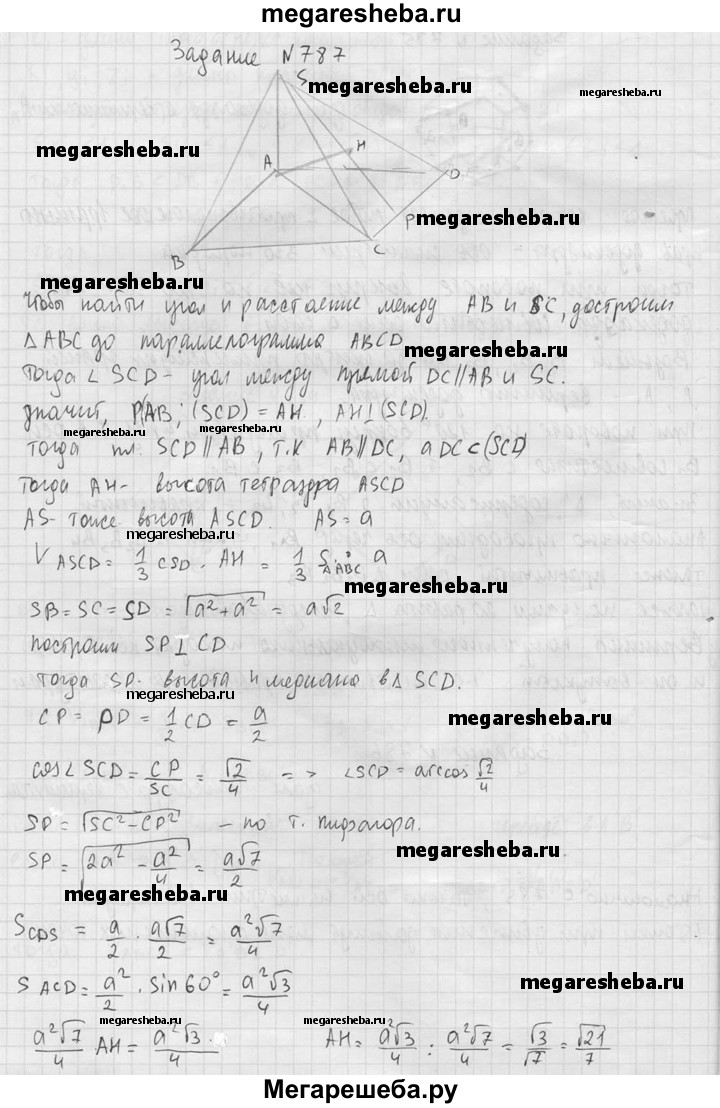 megaresheba.ru
Задание №787
S
megaresheba.ru
megaresheba.ru
megaresheba.ru
A
H
D
P
megaresheba.ru
B
C
megaresheba.ru
Чтобы найти угол и расстояние между AB и SC, достроим
△ABC до параллелограмма ABCD
megaresheba.ru
Тогда ∠ SCD - угол между прямой DC∥AB и SC.
значит, P(AB; (SCD) = AH, AH⊥(SCD).
megaresheba.ru
megaresheba.ru
тогда пл. SCD ∥ AB, т.к AB∥DC, а DC⊂(SCD)
Тогда AH - высота тетраэдра ASCD
AS- тоже высота ASCD. AS = a
megaresheba.ru
V ASCD = 1/3 CSD · AH = 1/3 S△ABC · a
megaresheba.ru
SB = SC = SD = √(a² + a²) = a√2
построим SP⊥CD
Тогда SP- высота и медиана в △ SCD.
megaresheba.ru
CP = PD = 1/2 CD = a/2
megaresheba.ru
cos∠ SCD = CP/SC = √2/4 => ∠SCD = arccos √2/4
SP = √(SC² - CP²) - по т. Пифагора.
megaresheba.ru
SP = √(2a² - a²/4) = a√7/2
megaresheba.ru
S CDS = a/2 · a√7/2 = a²√7/4
S ACD = a²/2 · sin 60° = a²√3/4
megaresheba.ru
megaresheba.ru
megaresheba.ru
a²√7/4 AH = a²√3/4 · AH = a²√3/4 : a²√7/4 = √3/√7 = √21/7
Мегарешеба.ру